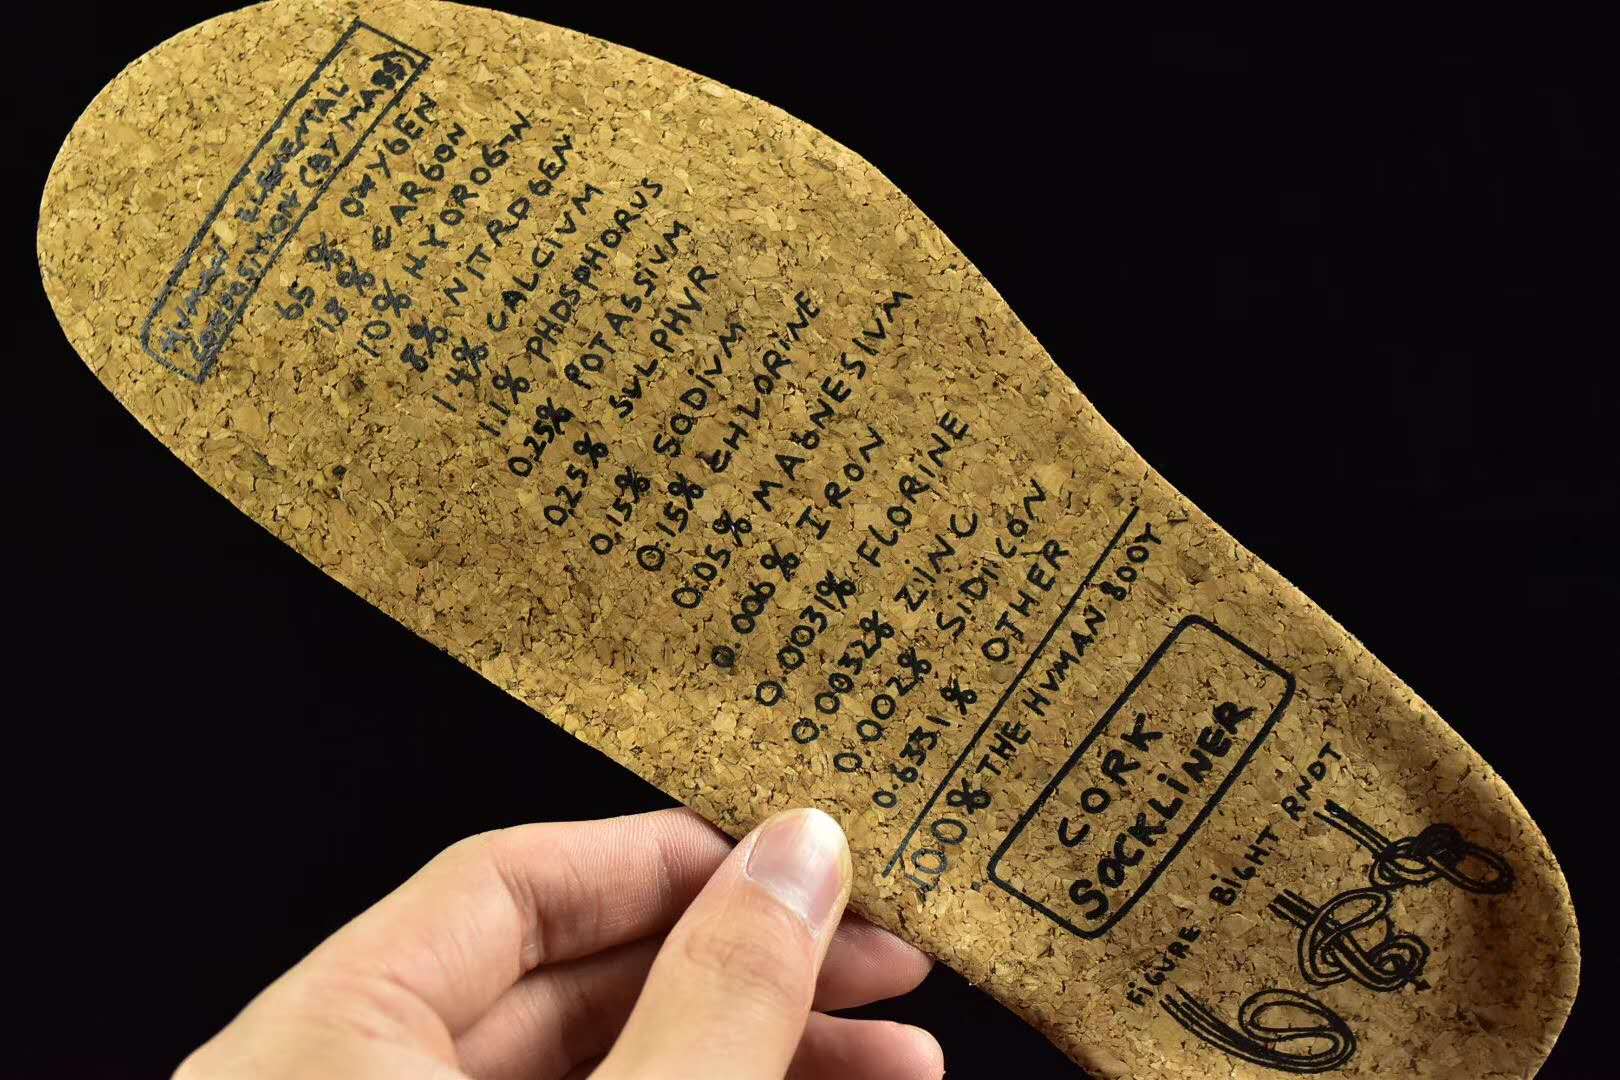 HUMAN ELEMENTAL
COMPOSITION (BY MASS)
65% OXYGEN
18% CARBON
10% HYDROGEN
8% NITROGEN
1.4% CALCIUM
1.1% PHOSPHORUS
0.25% POTASSIUM
0.25% SULPHUR
0.15% SODIUM
0.15% CHLORINE
0.05% MAGNESIUM
0.006% IRON
0.0031% FLORINE
0.0032% ZINC
0.002% SIDIICON
0.6331% OTHER
100% THE HUMAN BODY
CORK
SOCKLINER
FIGURE BIGHT RNDT